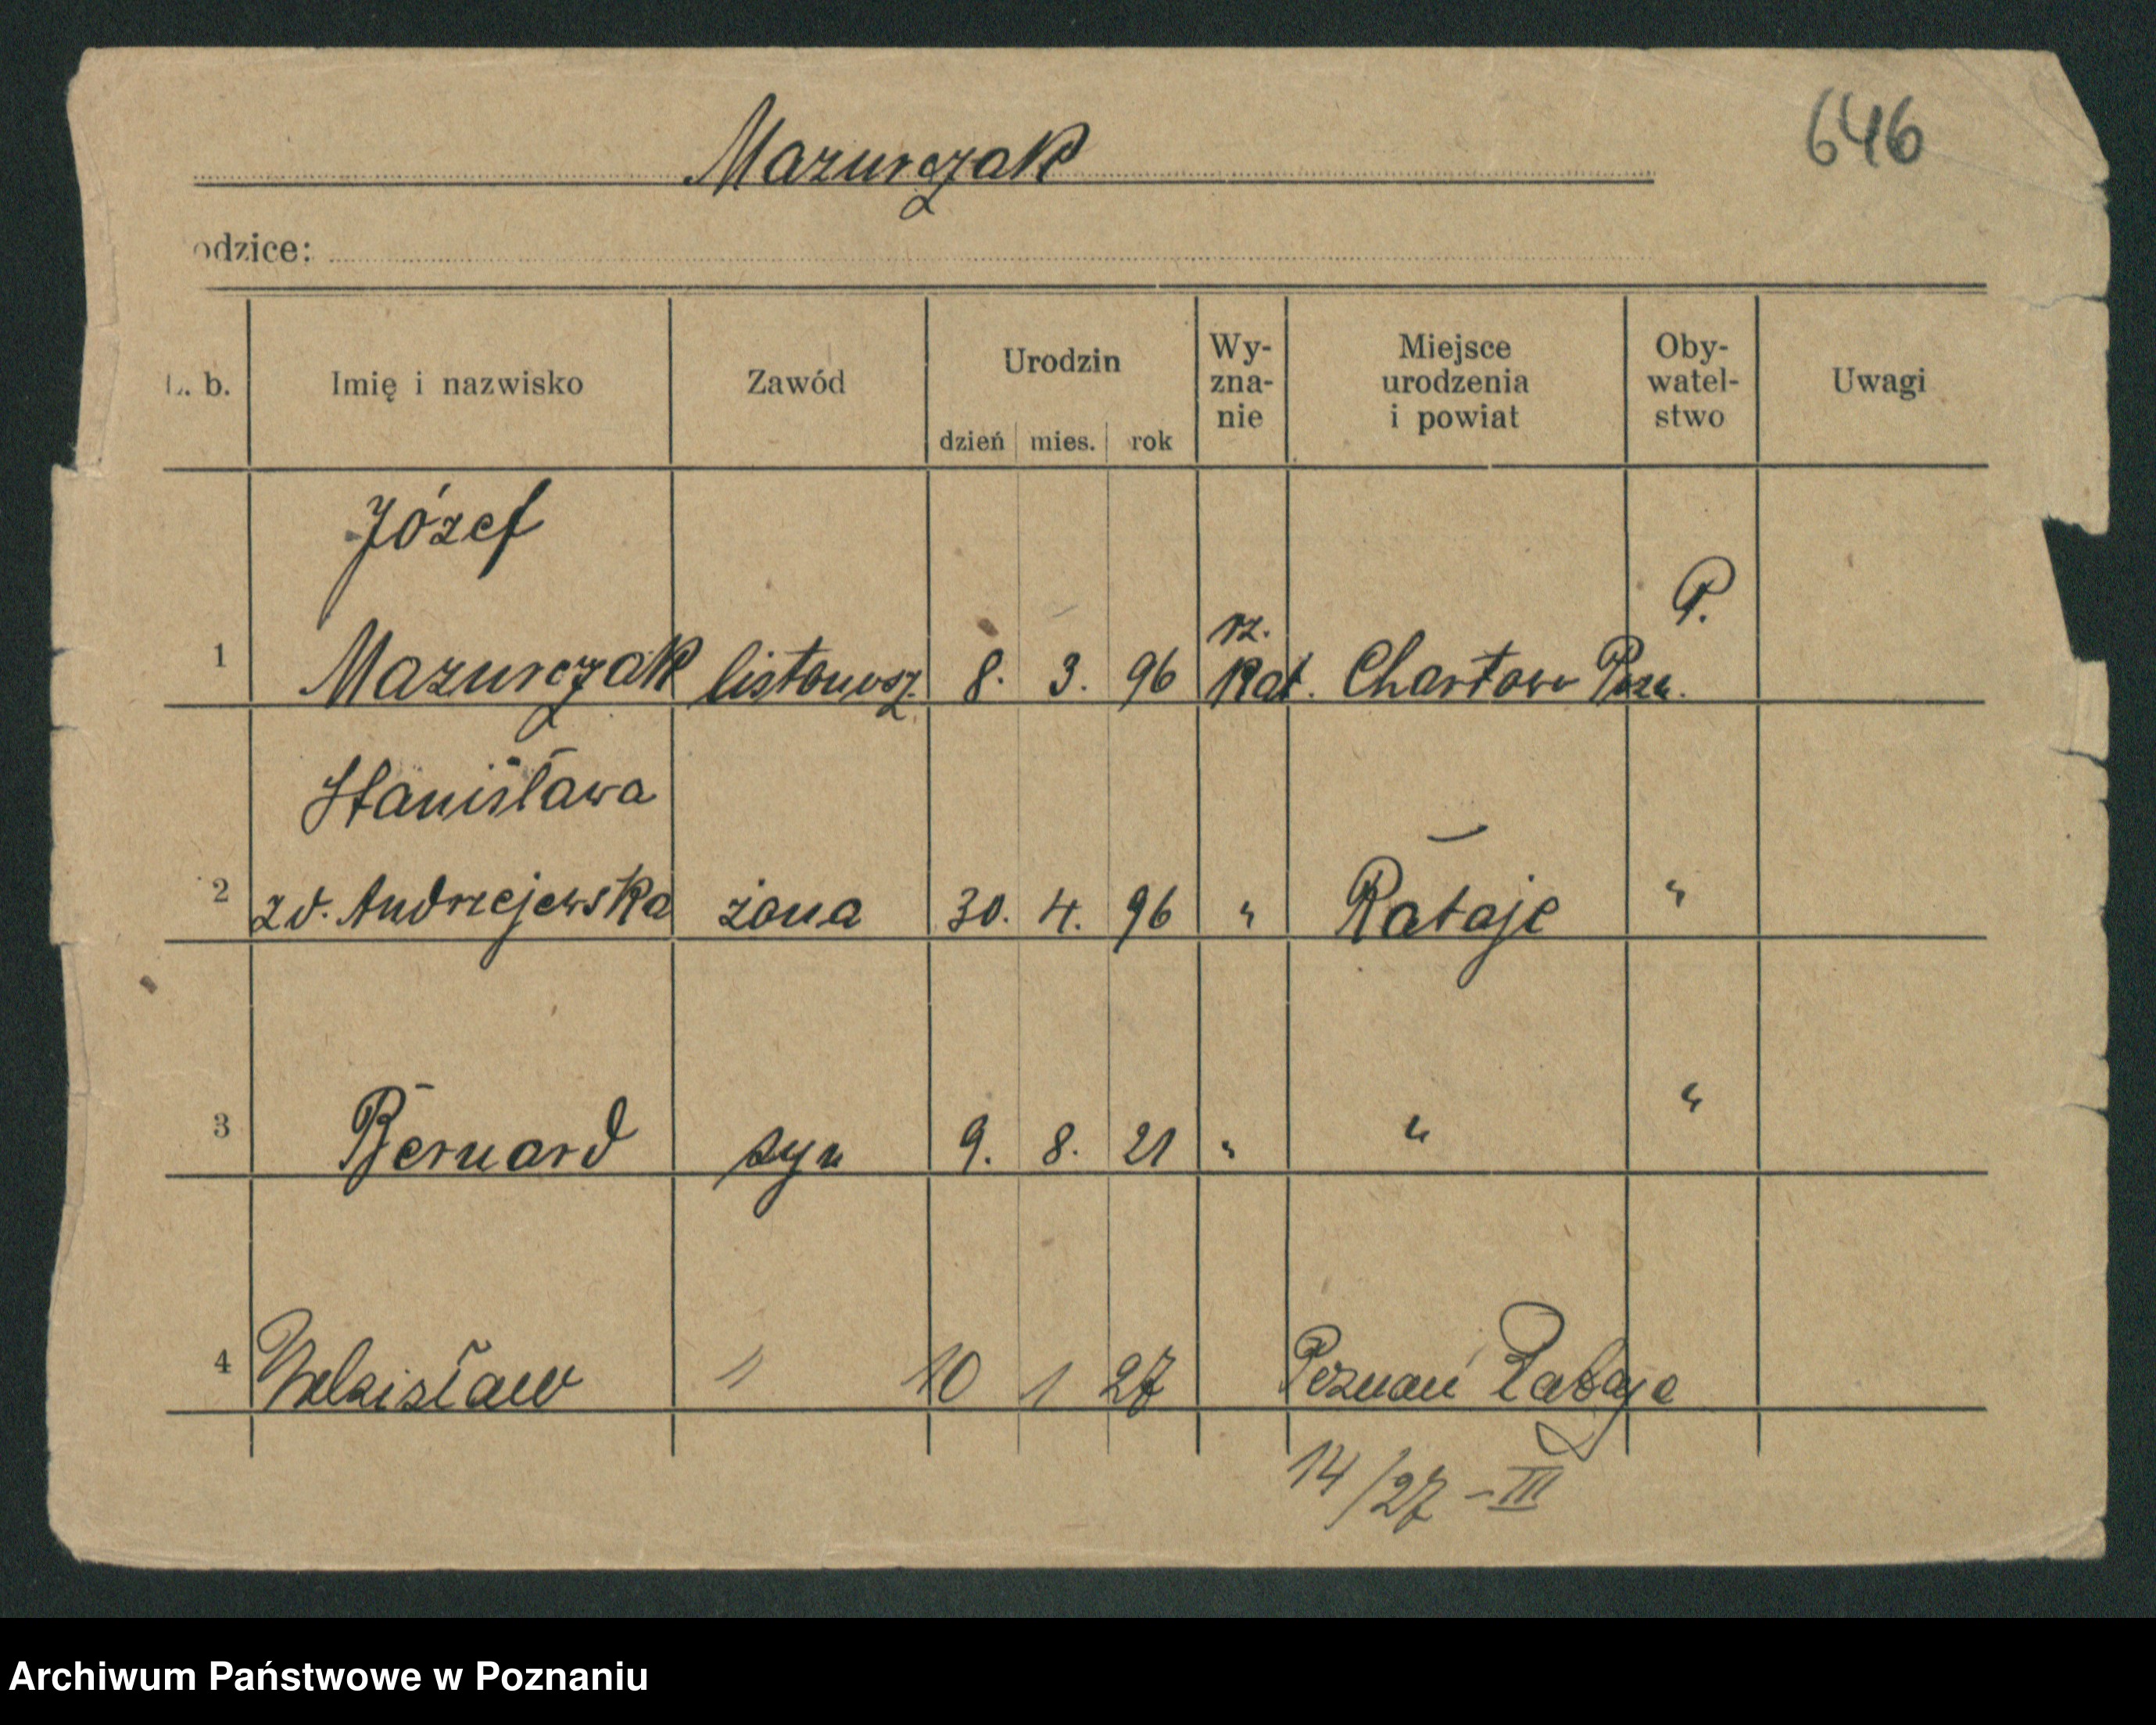 646
Mazurczak
odzice:
L. b. Imię i nazwisko Zawód Urodzin dzień mies. rok Wy-zna-nie Miejsce urodzenia i powiat Oby-watel-stwo Uwagi
Józef
P.
rz.
1 Mazurczak listonosz. 8. 3. 96 Kat. Chartowo Pozn.
Stanisława
2 zd. Andrzejewska żona 30. 4. 96 " Rataje "
3 Bernard syn 9. 8. 21 " " "
4 " 10 1 27 Poznań Rataje
14/27 - III
Archiwum Państwowe w Poznaniu